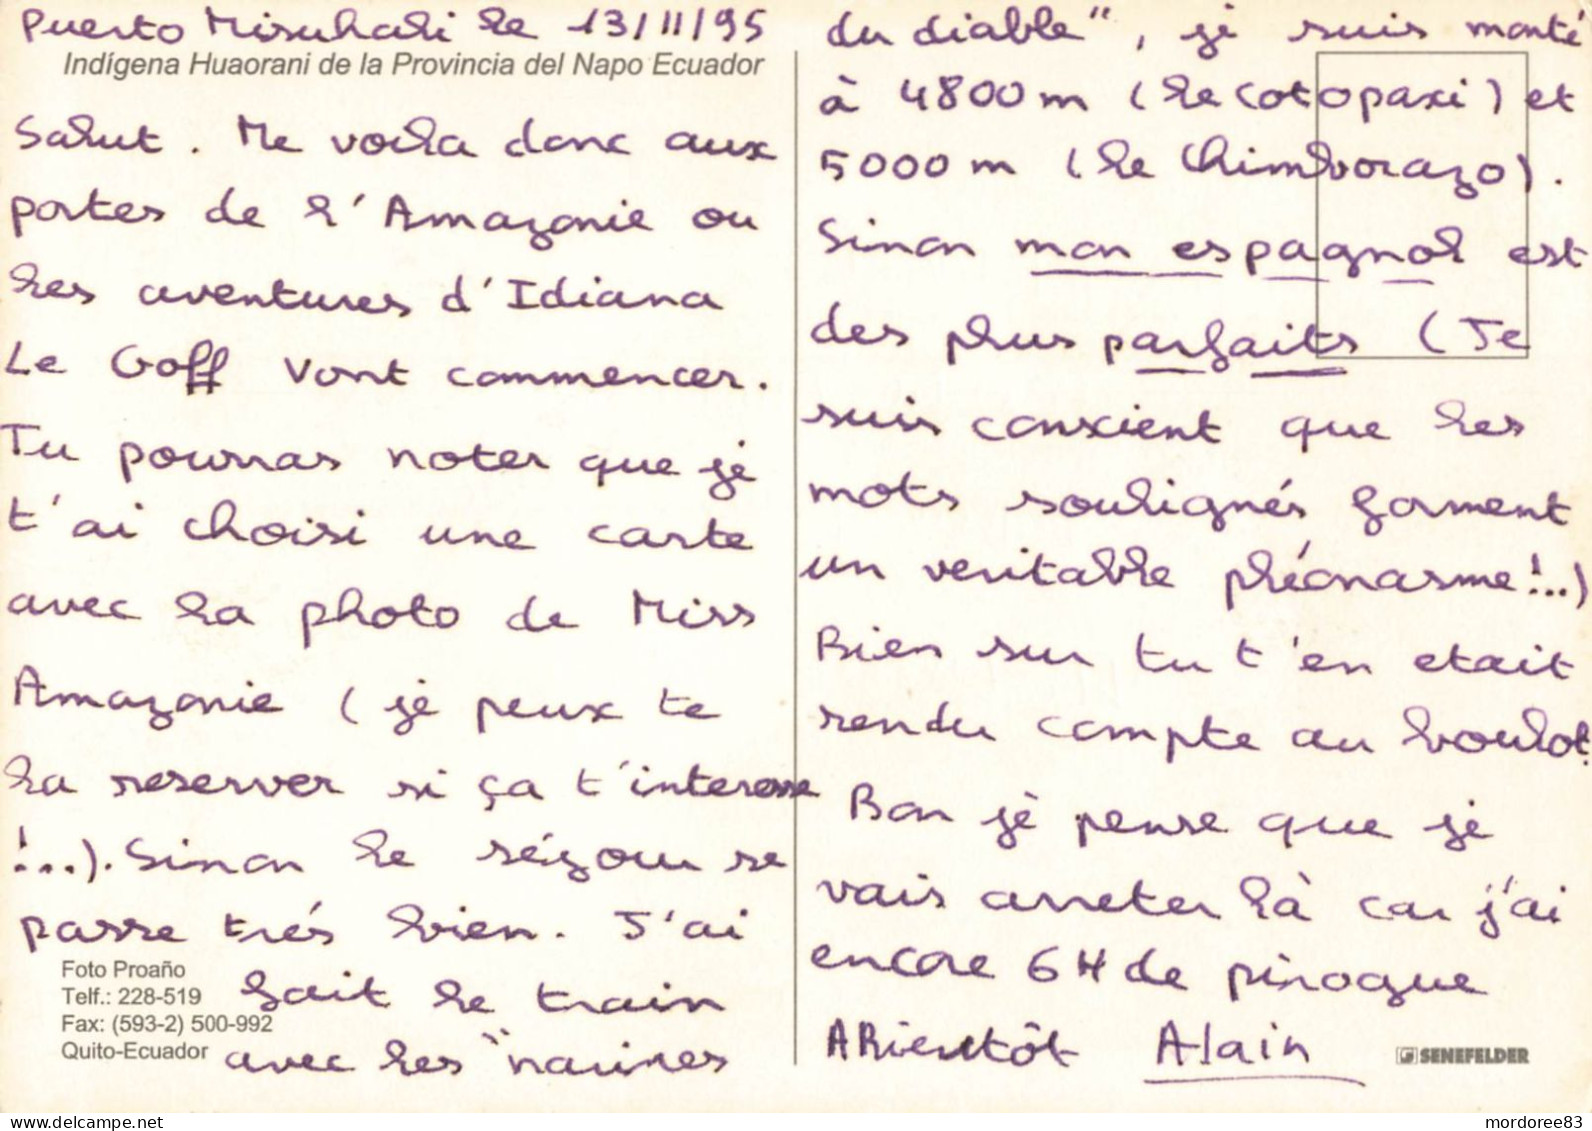 Puerto Misuhali le 13/11/95
Indígena Huaorani de la Provincia del Napo Ecuador
Salut. Me voila donc aux
portes de l'Amazonie ou
les aventures d'Idiana
Le Goff vont commencer.
Tu pourras noter que je
t'ai choisi une carte
avec la photo de Miss
Amazonie (je peux te
la reserver si ça t'interesse
!...). Sinon le séjour se
passe trés bien. J'ai
fait le train
avec les "narines
Foto Proaño
Telf.: 228-519
Fax: (593-2) 500-992
Quito-Ecuador
du diable", je suis monté
à 4800m (le Cotopaxi) et
5000m (le Chimborazo).
Sinon mon espagnol est
des plus parfaits (Je
suis conscient que les
mots soulignés forment
un veritable pléonasme!..)
Bien sur tu t'en etait
rendu compte au boulot.
Bon je pense que je
vais arreter là car j'ai
encore 6H de pirogue
A Bientôt Alain
SENEFELDER
www.delcampe.net
mordoree83